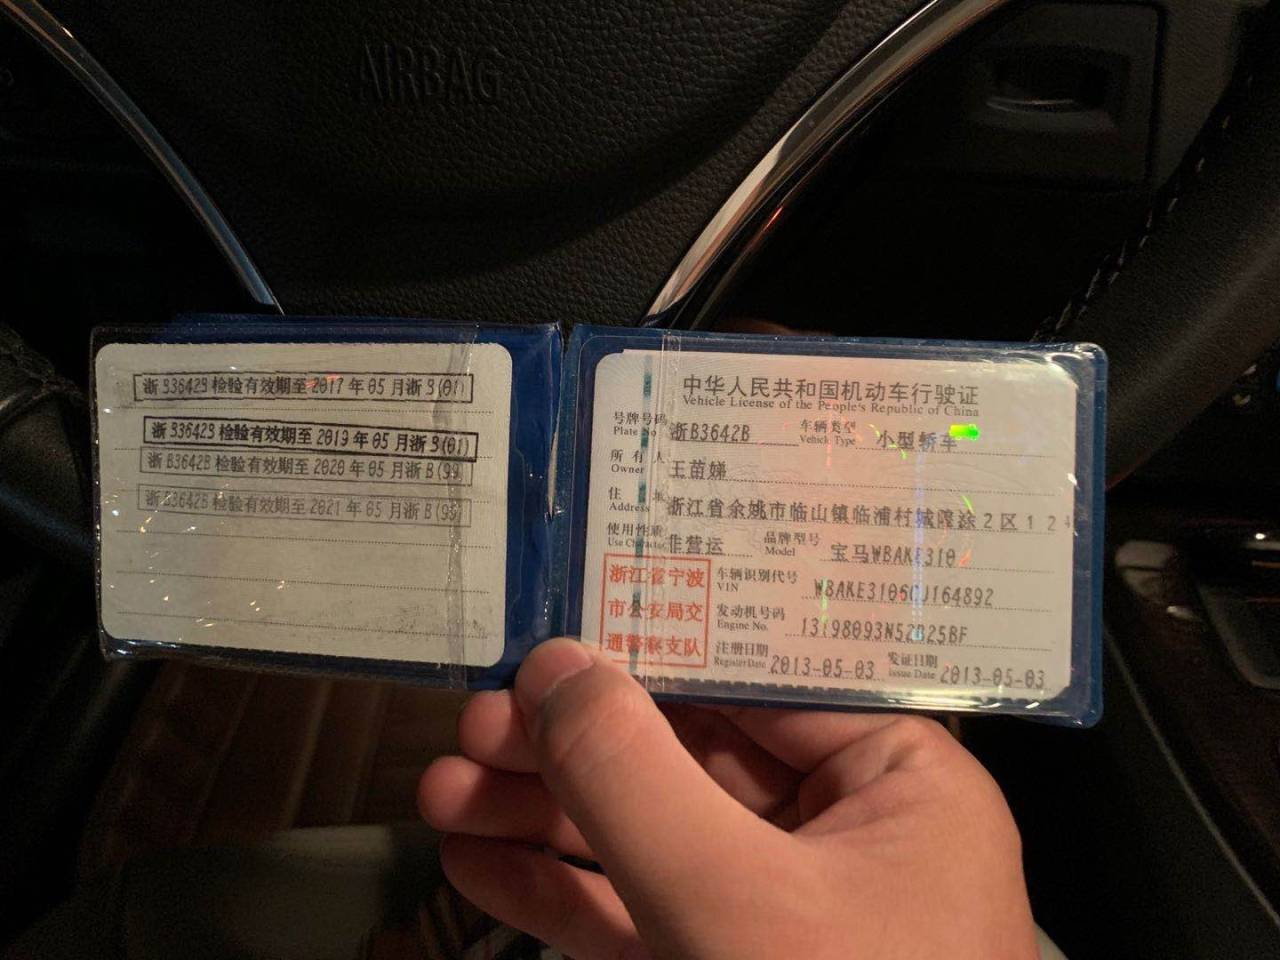 AIRBAG
浙B3642B检验有效期至2017年05月浙B(01)
浙B3642B检验有效期至2019年05月浙B(01)
浙B3642B检验有效期至2020年05月浙B(99)
浙B3642B检验有效期至2021年05月浙B(99)
中华人民共和国机动车行驶证
Vehicle License of the People's Republic of China
号牌号码 浙B3642B 车辆类型 小型轿车
Plate No. Vehicle Type
所有人 王苗娣
Owner
住址 浙江省余姚市临山镇临浦村城隍涂2区12
Address
使用性质 非营运 品牌型号 宝马WBAKE310
Use Character Model
浙江省宁波
市公安局交
通警察支队
车辆识别代号 WBAKE3106DJ164892
VIN
发动机号码 13198093N52B25BF
Engine No.
注册日期 2013-05-03 发证日期 2013-05-03
Register Date Issue Date